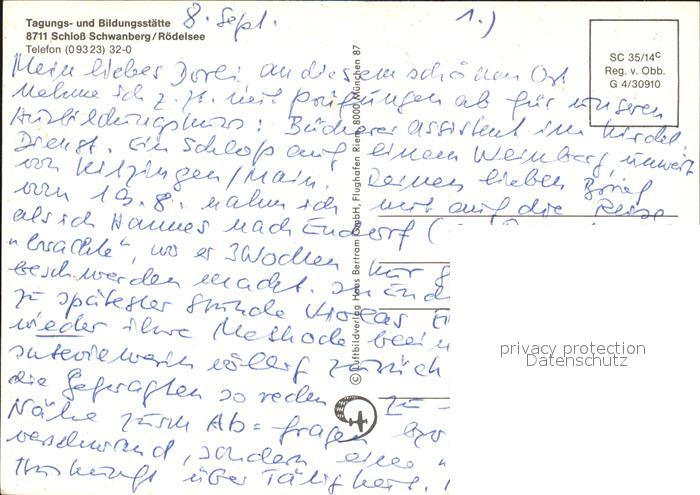 Tagungs- und Bildungsstätte
8711 Schloß Schwanberg/Rödelsee
Telefon (0 93 23) 32-0
8. Sept.
1.)
SC 35/14c
Reg. v. Obb.
G 4/30910
Mein lieber an diesem schönen Ort
nehme ich z. Zt. mit Prüfungen ab für unseren
Ausbildungskurs: Bücherei assistent im kirchl.
Dienst. Ein Schloß auf einem Weinberg, unweit
von Kitzingen/Main. Deinen lieben Brief
vom 19.8. nahm ich mit auf die Reise
als ich Hannes nach Endorf (
"brachte", wo er 3 Wochen Kur
beschwerden macht. In End
zu spätester Stunde
wieder ihre Methode beein
völlig zurück
die Gefragten so reden zu-
Nähe zum Ab=fragen
verschwand, sondern eine "
über Tätigkeit.
© Luftbildverlag Hans Bertram GmbH, Flughafen Riem, 8000 München 87
privacy protection
Datenschutz